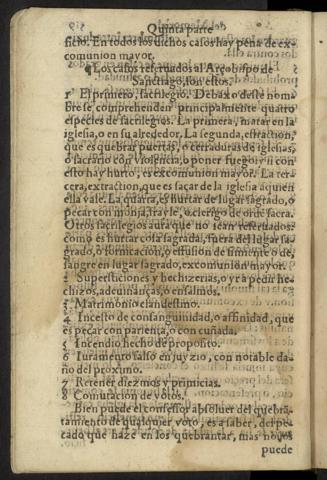 Quinta parte
ficio. En todos los dichos casos hay pena de ex-
comunion mayor.
¶ Los casos reseruados al Arçobispo de
Sanctiago, son estos.
1 El primero, sacrilegio. Debaxo deste nom-
bre se comprehenden principalmente quatro
especies de sacrilegios. La primera, matar en la
iglesia, o en su alrededor. La segunda, effraction,
que es quebrar puertas, o cerraduras de iglesias,
o sacrario con violencia, o poner fuego: y si con
esto hay hurto, hay excomunion mayor. La ter-
cera, extraction, que es sacar de la iglesia a quien
ella vale. La quarta, es hurtar de lugar sagrado, o
pecar con monja, frayle, o clerigo de orde sacra.
Otros sacrilegios aura que no sean reseruados:
como es hurtar cosa sagrada, fuera del lugar sa-
grado, o fornicacion, o effusion de simiente o de
sangre en lugar sagrado, ex comunion mayor.
2 Supersticiones y hechizerias, o yr a pedir he-
chizos, adeuinanças, o ensalmos.
3 Matrimonio clandestino.
4 Incesto de consanguinidad, o affinidad, que
es pecar con parienta, o con cuñada.
5 Incendio hecho de proposito.
6 Iuramento falso en juyzio, con notable da-
ño del proximo.
7 Retener diezmos y primicias.
8 Comutacion de votos.
Bien puede el confessor absoluer del quebra-
tamiento de qualquier voto, es a saber, del pe-
cado que haze en los quebrantar, mas no los
puede